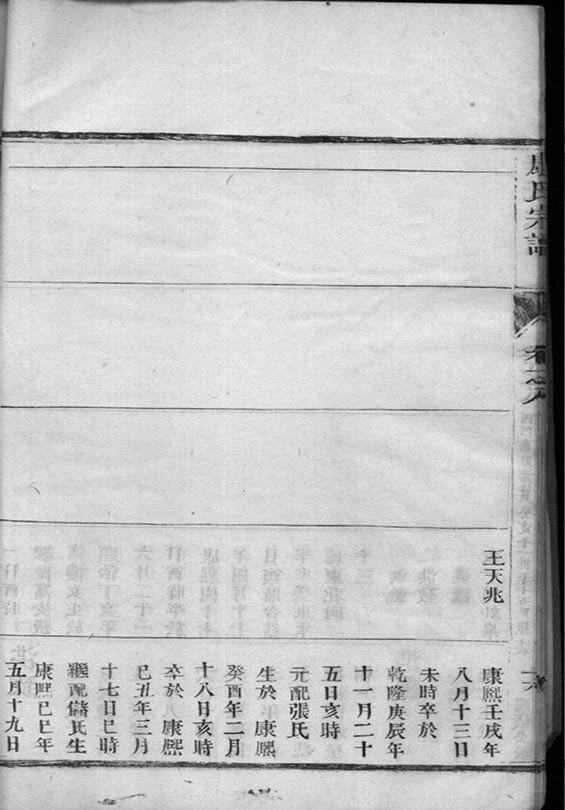 氏宗譜
王天兆
康熙壬戌年
八月十三日
未時卒於
乾隆庚辰年
十一月二十
五日亥時
元配張氏
生於 康熙
癸酉年二月
十八日亥時
卒於 康熙
巳丑年三月
十七日巳時
繼配儲氏生
康熙巳巳年
五月十九日